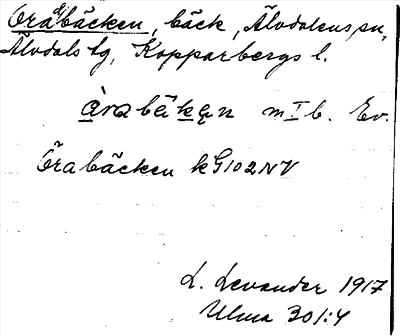 Öråbäcken, bäck, Älvdalens sn,
Älvdals tg, Kopparbergs l.
àrabäkęn m I b. Ev.
Örabäcken kG102NV
L. Levander 1917
Ulma 301:4